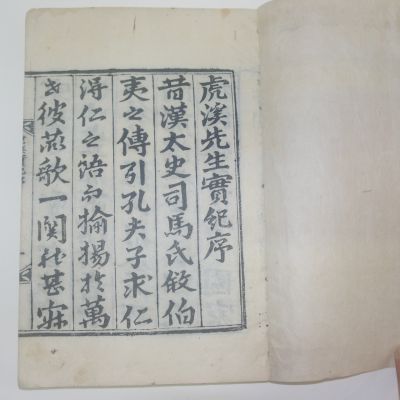 虎溪先生實紀序
昔漢太史司馬氏敘伯
夷之傳引孔夫子求仁
得仁之語而揄揚於萬
古彼燕歌一関於甚寂